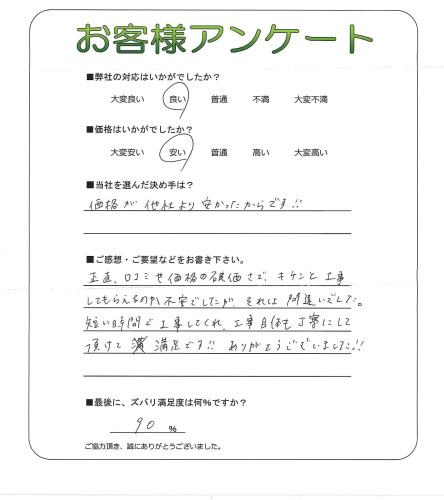 お客様アンケート
■弊社の対応はいかがでしたか？
大変良い 良い 普通 不満 大変不満
■価格はいかがでしたか？
大変安い 安い 普通 高い 大変高い
■当社を選んだ決め手は？
価格が他社より安かったからです!!
■ご感想・ご要望などをお書き下さい。
正直、口コミや価格の破価さで、キチンと工事
してもらえるのか不安でしたが、それは間違いでした。
短い時間で工事してくれ、工事自体も丁寧にして
頂けて 満足です!! ありがとうございました!!
■最後に、ズバリ満足度は何％ですか？
90 %
ご協力頂き、誠にありがとうございました。